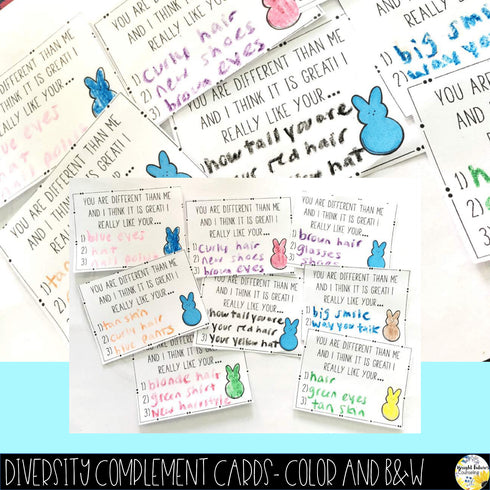 YOU ARE DIFFERENT THAN ME
AND I THINK IT IS GREAT! I
REALLY LIKE YOUR...
1) curly hair
2) new shoes
3) brown eyes
1) big smile
2) way you talk
YOU ARE DIFFERENT THAN ME
AND I THINK IT IS GREAT! I
REALLY LIKE YOUR...
how tall you are
your red hair
yellow hat
YOU ARE DIFFERENT THAN ME
AND I THINK IT IS GREAT! I
REALLY LIKE YOUR...
blue eyes
hat
nail polish
YOU ARE DIFFERENT THAN ME
AND I THINK IT IS GREAT! I
REALLY LIKE YOUR...
1)
2)
3)
YOU ARE DIFFERENT
AND I THINK IT
REALLY LIKE
1)
2)
YOU ARE DIFFERENT THAN ME
AND I THINK IT IS GREAT! I
REALLY LIKE YOUR...
1) blue eyes
2) hat
3) nail polish
YOU ARE DIFFERENT THAN ME
AND I THINK IT IS GREAT! I
REALLY LIKE YOUR...
1) curly hair
2) new shoes
3) brown eyes
YOU ARE DIFFERENT THAN ME
AND I THINK IT IS GREAT! I
REALLY LIKE YOUR...
1) brown hair
2) glasses
3) shoes
YOU ARE DIFFERENT THAN ME
AND I THINK IT IS GREAT! I
REALLY LIKE YOUR...
1) tan skin
2) curly hair
3) blue pants
YOU ARE DIFFERENT THAN ME
AND I THINK IT IS GREAT! I
REALLY LIKE YOUR...
how tall you are
your red hair
your yellow hat
YOU ARE DIFFERENT THAN ME
AND I THINK IT IS GREAT! I
REALLY LIKE YOUR...
1) big smile
2) way you talk
3)
YOU ARE DIFFERENT THAN ME
AND I THINK IT IS GREAT! I
REALLY LIKE YOUR...
1) blonde hair
2) green shirt
3) New hairstyle
YOU ARE DIFFERENT THAN ME
AND I THINK IT IS GREAT! I
REALLY LIKE YOUR...
1) hair
2) green eyes
3) tan skin
DIVERSITY COMPLEMENT CARDS- COLOR AND B&W
Bright Futures
Counseling